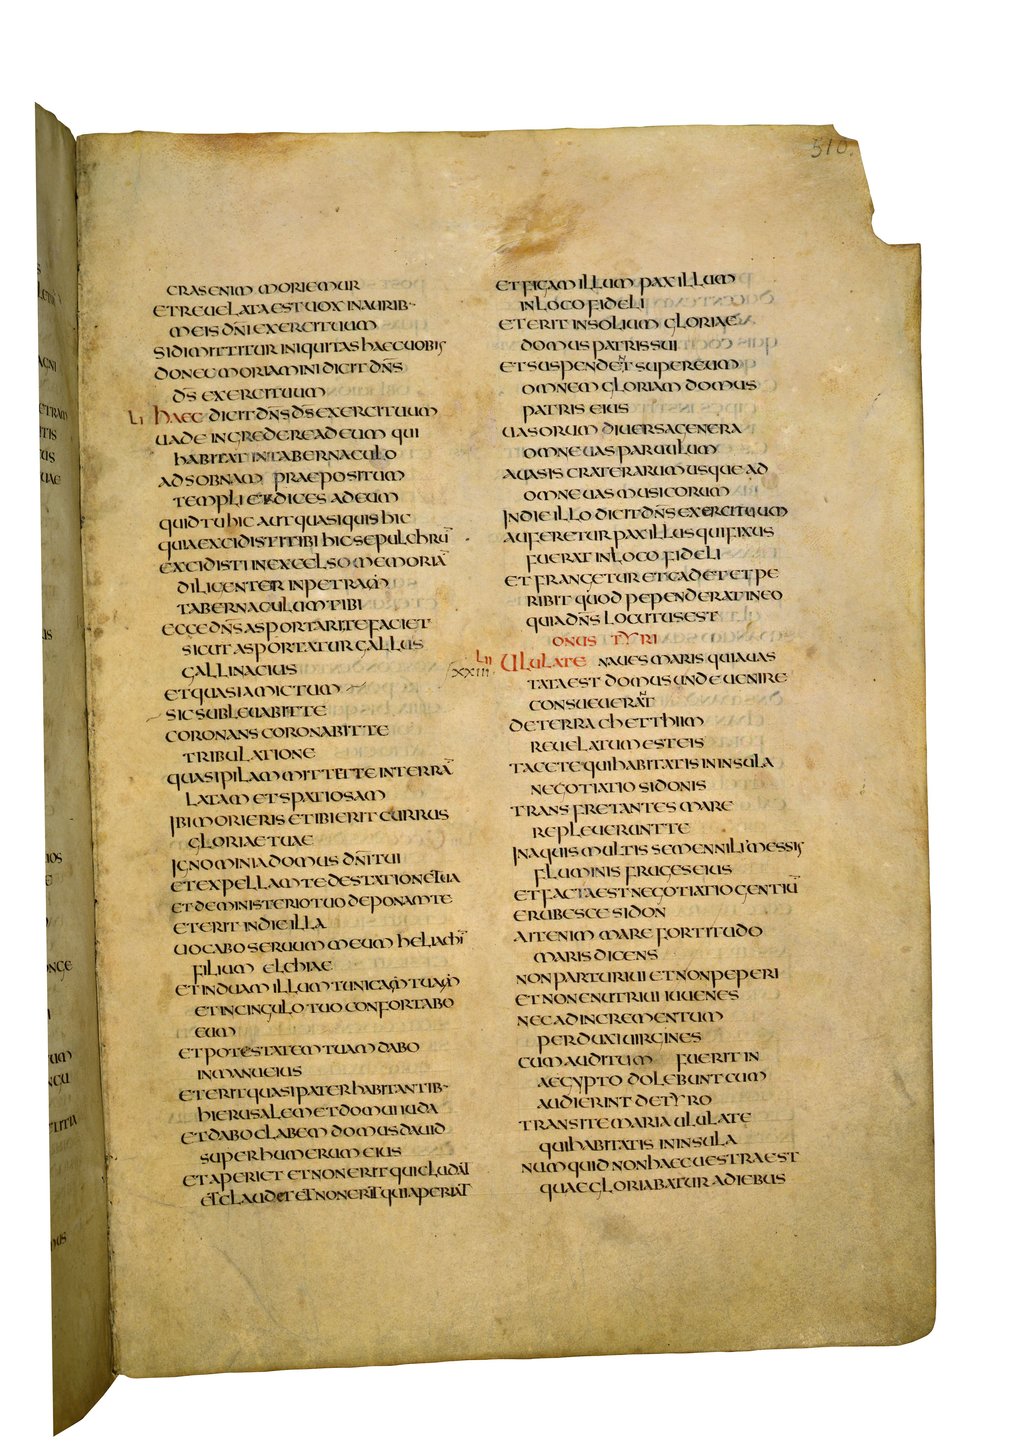 510.
CRAS ENIM MORIEMUR
ET REUELATA EST UOX IN AURIB·
MEIS DN̄I EXERCITUUM
SI DIMITTITUR INIQUITAS HAEC UOBIS
DONEC MORIAMINI DICIT DN̄S
D̄S EXERCITUUM
LI HAEC DICIT DN̄S D̄S EXERCITUUM
UADE INGREDERE AD EUM QUI
HABITAT IN TABERNACULO
AD SOBNAM PRAEPOSITUM
TEMPLI ET DICES AD EUM
QUID TU HIC AUT QUASI QUIS HIC
QUIA EXCIDISTI TIBI HIC SEPULCHRŪ
EXCIDISTI IN EXCELSO MEMORIĀ
DILIGENTER IN PETRA
TABERNACULUM TIBI
ECCE DN̄S ASPORTARI TE FACIET
SICUT ASPORTATUR GALLUS
GALLINACIUS
ET QUASI AMICTUM
SIC SUBLEUABIT TE
CORONANS CORONABIT TE
TRIBULATIONE
QUASI PILAM MITTET TE IN TERRĀ
LATAM ET SPATIOSAM
IBI MORIERIS ET IBI ERIT CURRUS
GLORIAE TUAE
IGNOMINIA DOMUS DN̄I TUI
ET EXPELLAM TE DE STATIONE TUA
ET DE MINISTERIO TUO DEPONAM TE
ET ERIT IN DIE ILLA
UOCABO SERUUM MEUM HELIACHĪ
FILIUM ELCHIAE
ET INDUAM ILLUM TUNICAM TUAM
ET IN CINGULO TUO CONFORTABO
EUM
ET POTESTATEM TUAM DABO
IN MANU EIUS
ET ERIT QUASI PATER HABITANTIB·
HIERUSALEM ET DOMUI IUDA
ET DABO CLABEM DOMUS DAUID
SUPER HUMERUM EIUS
ET APERIET ET NON ERIT QUI CLUDAT
ET CLAUDET ET NON ERIT QUI APERIAT
ET FIGAM ILLUM PAXILLUM
IN LOCO FIDELI
ET ERIT IN SOLIUM GLORIAE
DOMUS PATRIS SUI
ET SUSPENDENT SUPER EUM
OMNEM GLORIAM DOMUS
PATRIS EIUS
UASORUM DIUERSA GENERA
OMNE UAS PARUULUM
A UASIS CRATERARUM USQUE AD
OMNE UAS MUSICORUM
IN DIE ILLO DICIT DN̄S EXERCITUUM
AUFERETUR PAXILLUS QUI FIXUS
FUERAT IN LOCO FIDELI
ET FRANGETUR ET CADET ET PE
RIBIT QUOD PEPENDERAT IN EO
QUIA DN̄S LOCUTUS EST
ONUS TYRI
LII ULULATE NAUES MARIS QUIA UAS
XXIII
TATA EST DOMUS UNDE UENIRE
CONSUEUERANT
DE TERRA CHETTHIIM
REUELATUM EST EIS
TACETE QUI HABITATIS IN INSULA
NEGOTIATIO SIDONIS
TRANSFRETANTES MARE
REPLEUERUNT TE
IN AQUIS MULTIS SEMEN NILI MESSIS
FLUMINIS FRUGES EIUS
ET FACTA EST NEGOTIATIO GENTIŪ
ERUBESCE SIDON
AIT ENIM MARE FORTITUDO
MARIS DICENS
NON PARTURIUI ET NON PEPERI
ET NON ENUTRIUI IUUENES
NEC AD INCREMENTUM
PERDUXI UIRGINES
CUM AUDITUM FUERIT IN
AEGYPTO DOLEBUNT CUM
AUDIERINT DE TYRO
TRANSITE MARIA ULULATE
QUI HABITATIS IN INSULA
NUMQUID NON HAEC UESTRA EST
QUAE GLORIABATUR A DIEBUS